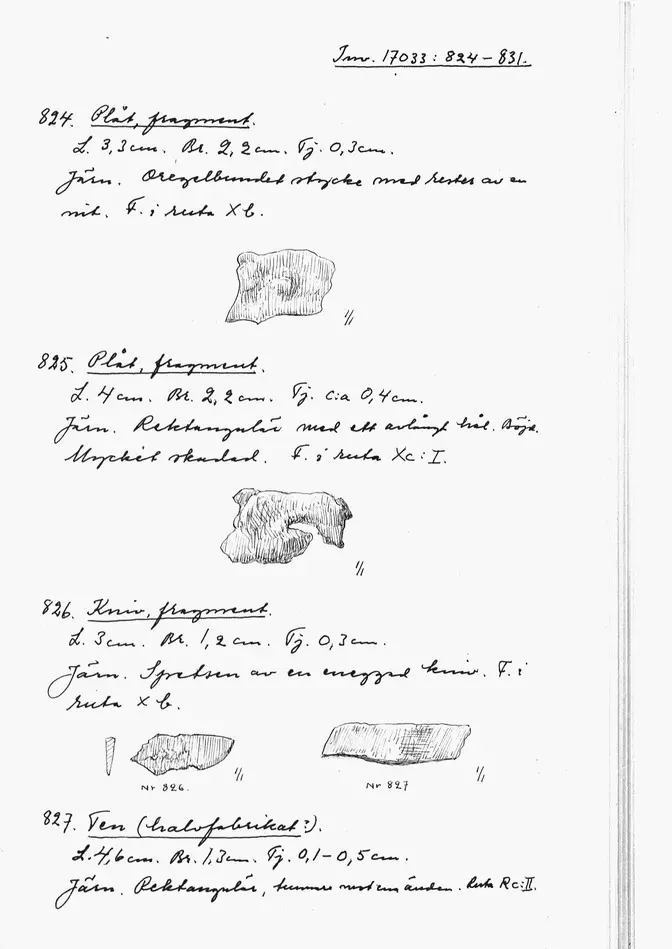 Inv. 17033: 824-831.
824. Plåt, fragment.
L. 3,3cm. Br. 2,2cm. Tj. 0,3cm.
Järn. Oregelbundet stycke med rester av en
nit. F. i ruta X b.
1/1
825. Plåt, fragment.
L. 4cm. Br. 2,2cm. Tj. c:a 0,4cm.
Järn. Rektangulär med ett avlångt hål. Böjd.
Mycket skadad. F. i ruta Xc:I.
1/1
826. Kniv, fragment.
L. 3cm. Br. 1,2cm. Tj. 0,3cm.
Järn. Spetsen av en eneggad kniv. F. i
ruta X b.
1/1
1/1
Nr 826.
Nr 827
827. Ten (halvfabrikat?).
L. 4,6cm. Br. 1,3cm. Tj. 0,1-0,5cm.
Järn. Rektangulär, tunnare mot ena änden. Ruta Rc:II.